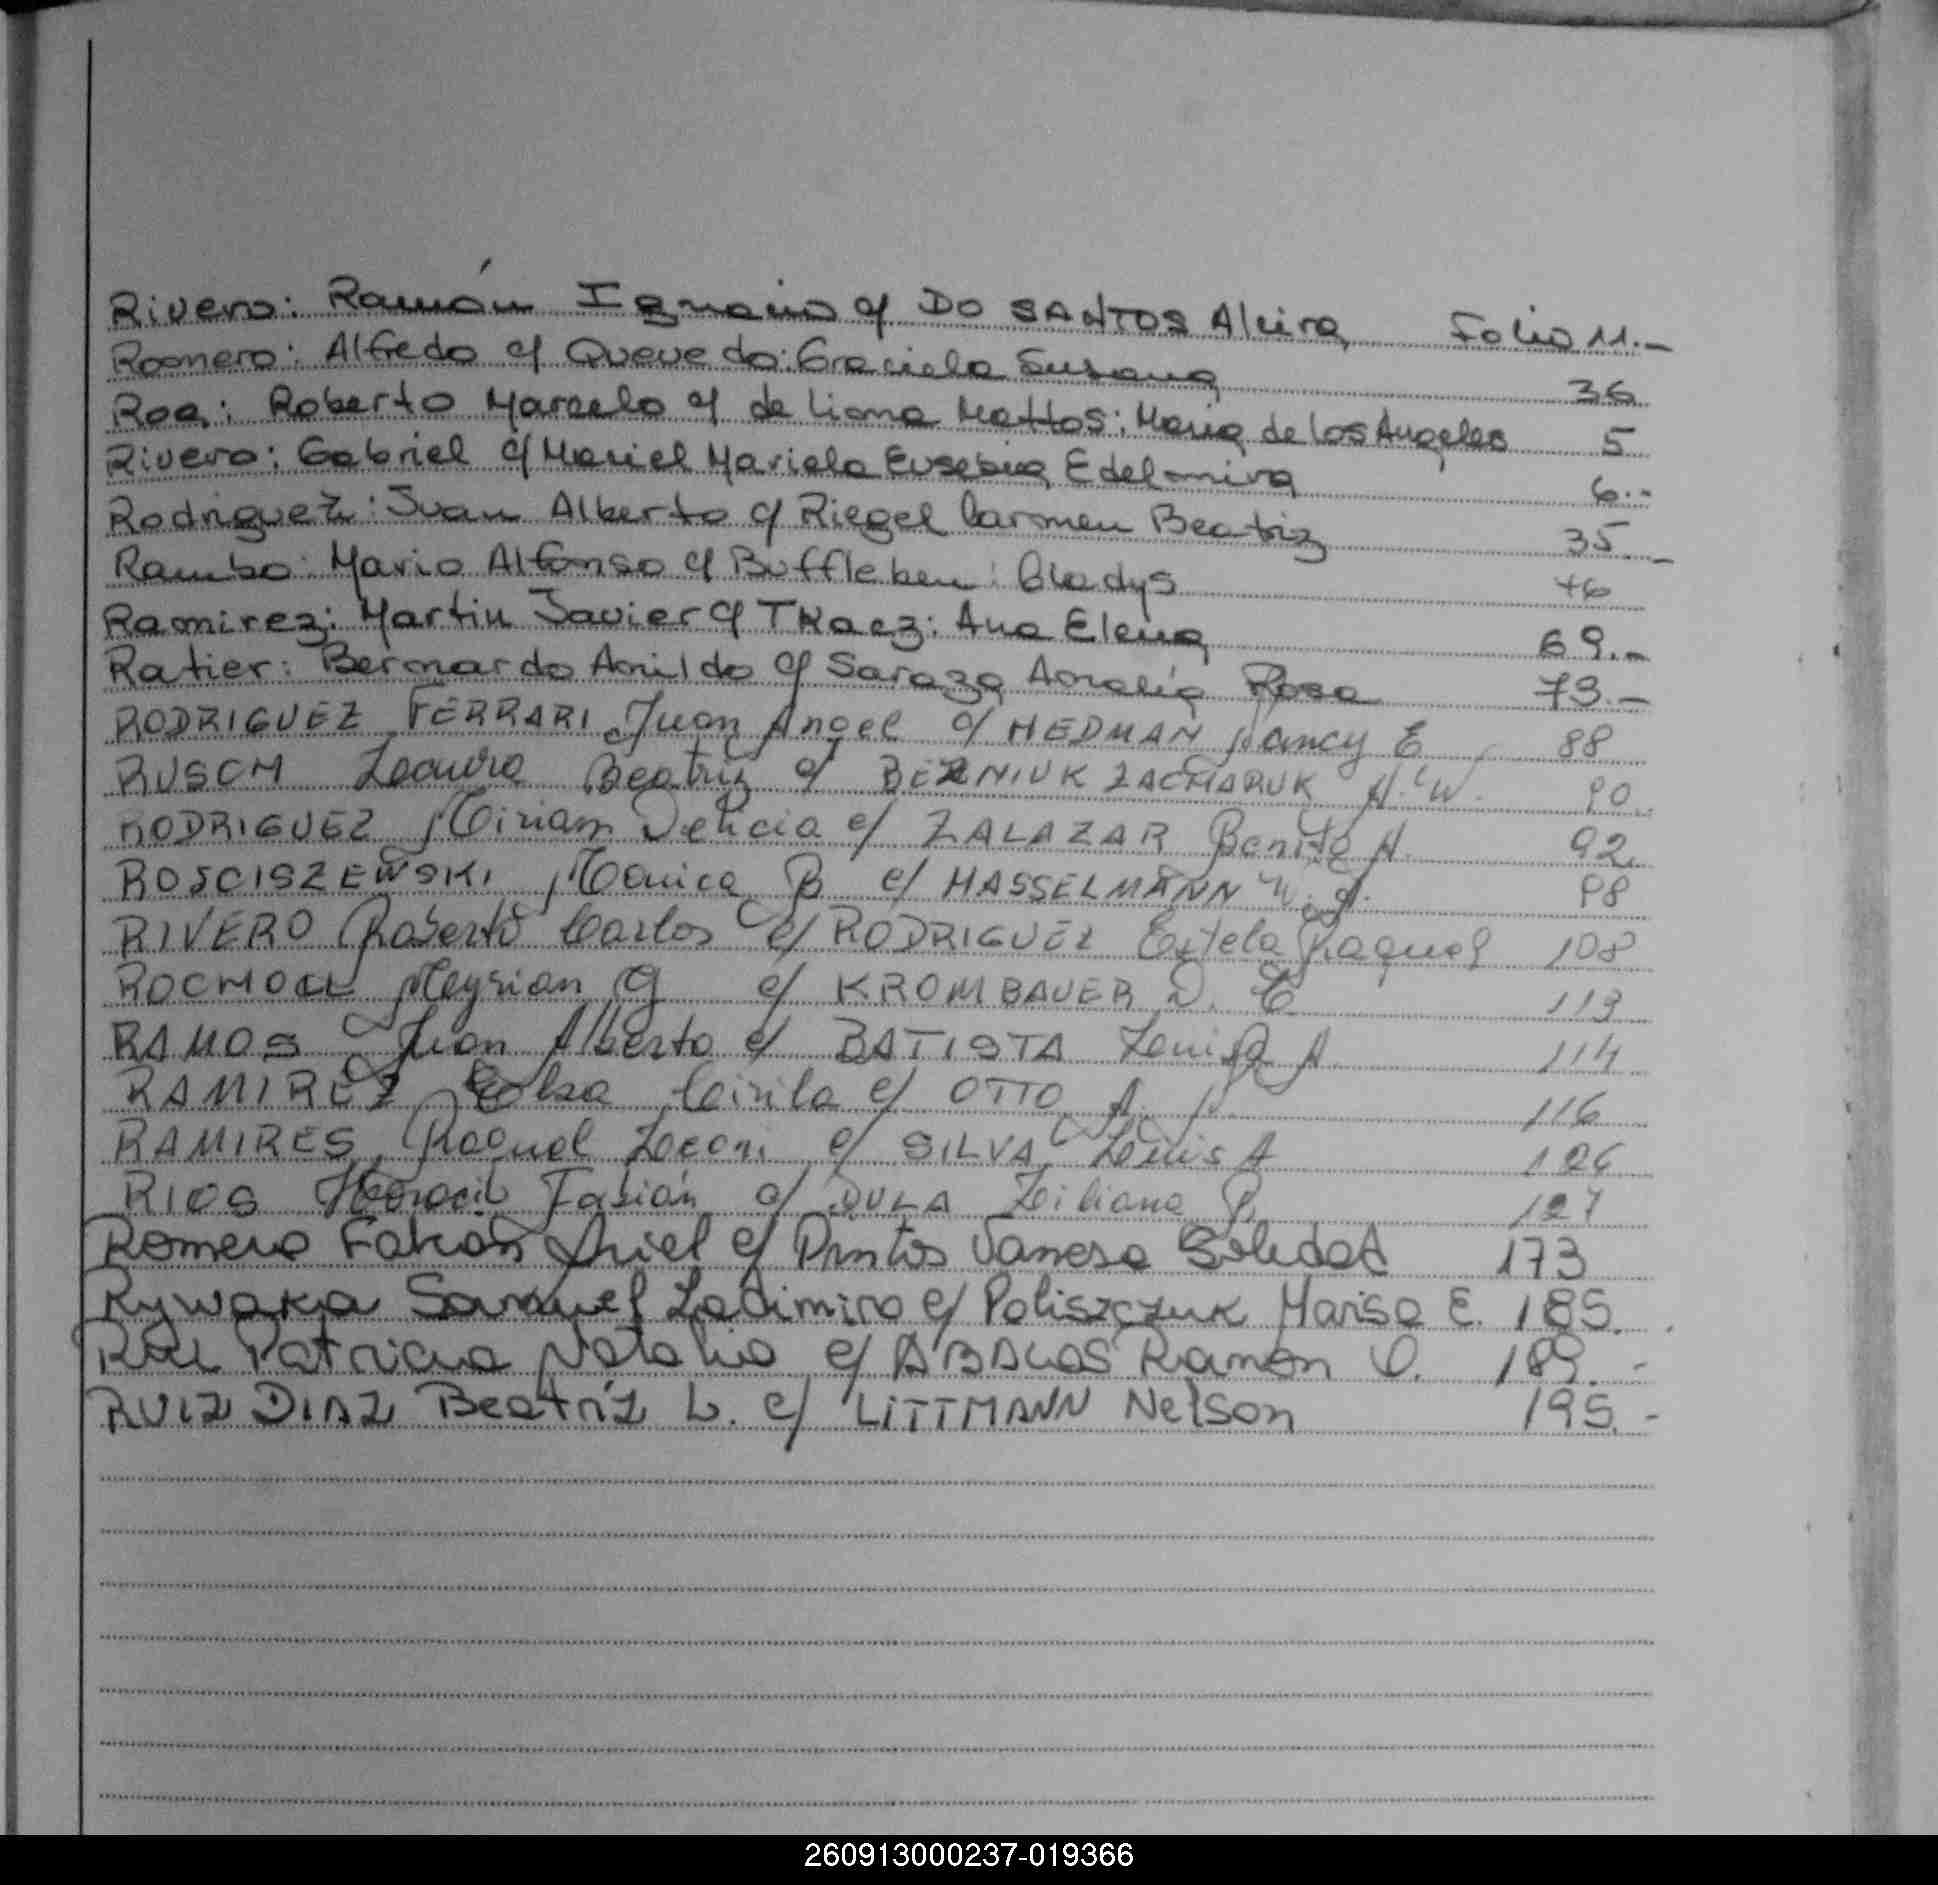 Rivero: Ramón Ignacio c/ DO SANTOS Alcira Folio 11.-
Romero: Alfredo c/ Quevedo: Graciela Susana 36
Roa: Roberto Marcelo c/ de Lima Mattos: Maria de los Angeles 5
Rivero: Gabriel c/ Maciel Mariela Eusebia Edelmira 6.-
Rodriguez: Juan Alberto c/ Riegel Carmen Beatriz 35.-
Rambo: Mario Alfonso c/ Buffleben: Gladys 46
Ramirez: Martin Javier c/ TKacz: Ana Elena 69.-
Ratier: Bernardo Anildo c/ Saraza Amalia Rosa 73.-
RODRIGUEZ FERRARI Juan Angel c/ HEDMAN Nancy E 88
RUSCH Laura Beatriz c/ BEZNIUK ZACHARUK 90
RODRIGUEZ Miriam Delicia c/ ZALAZAR Benito A. 92
ROSCISZEWSKI Monica B c/ HASSELMANN 98
RIVERO Roberto Carlos c/ RODRIGUEZ Estela Raquel 108
Myrian G c/ KROMBAUER D. C 113
RAMOS Juan Alberto c/ BATISTA A 114
RAMIREZ Elsa Cirila c/ OTTO A. 116
RAMIRES Raquel c/ SILVA Luis A 126
RIOS Horacio Fabián c/ DULA Liliana 127
Romero Falcon Ariel c/ Pintos Vanesa Soledad 173
Rywaka Samuel Ladimiro c/ Poliszczuk Marisa E. 185.
Patricia Natalia c/ ABALOS Ramon O. 189.-
RUIZ DIAZ Beatríz L. c/ LITTMANN Nelson 195.-
260913000237-019366